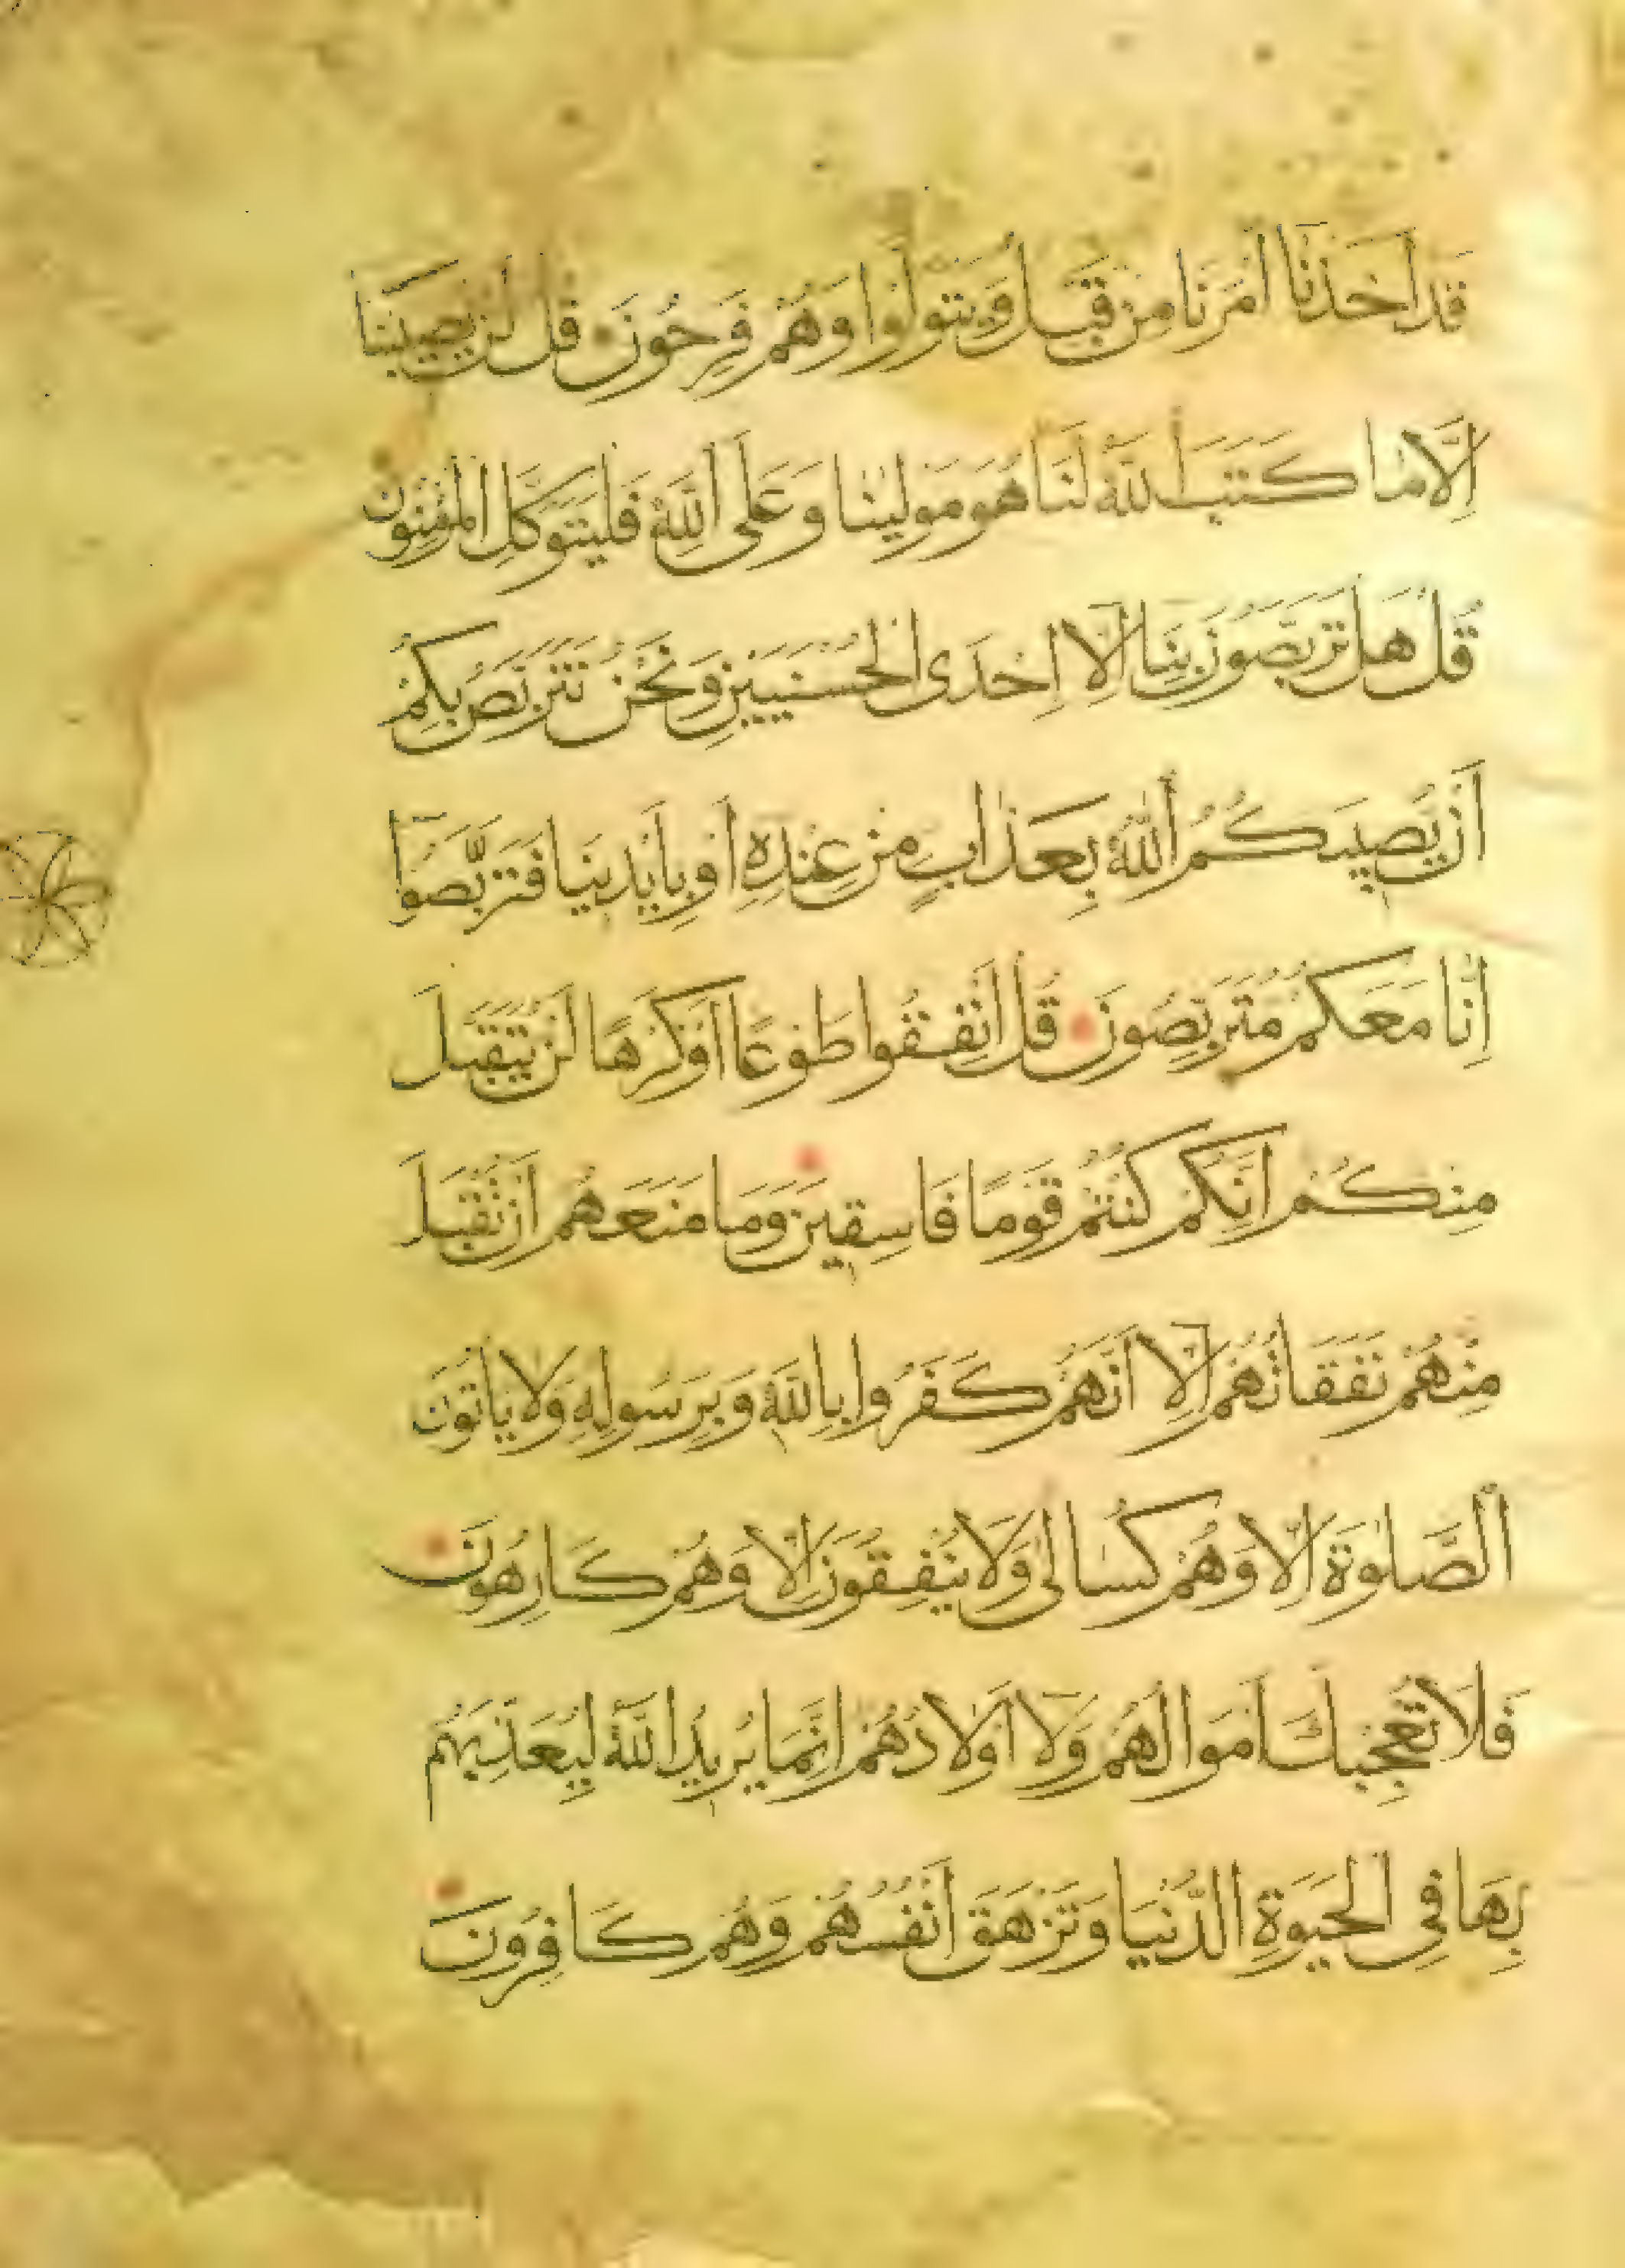 قَدْ اَخَذْنَا اَمْرَنَا مِنْ قَبْلُ وَيَتَوَلَّوْا وَهُمْ فَرِحُونَ قُلْ لَنْ يُصِيبَنَا
اِلَّا مَا كَتَبَ اللهُ لَنَا هُوَ مَوْلٰينَا وَعَلَى اللهِ فَلْيَتَوَكَّلِ الْمُؤْمِنُونَ
قُلْ هَلْ تَرَبَّصُونَ بِنَا اِلَّا اِحْدَى الْحُسْنَيَيْنِ وَنَحْنُ نَتَرَبَّصُ بِكُمْ
اَنْ يُصِيبَكُمُ اللهُ بِعَذَابٍ مِنْ عِنْدِهِ اَوْ بِاَيْدِينَا فَتَرَبَّصُوا
اِنَّا مَعَكُمْ مُتَرَبِّصُونَ قُلْ اَنْفِقُوا طَوْعًا اَوْ كَرْهًا لَنْ يُتَقَبَّلَ
مِنْكُمْ اِنَّكُمْ كُنْتُمْ قَوْمًا فَاسِقِينَ وَمَا مَنَعَهُمْ اَنْ تُقْبَلَ
مِنْهُمْ نَفَقَاتُهُمْ اِلَّا اَنَّهُمْ كَفَرُوا بِاللهِ وَبِرَسُولِهِ وَلَا يَاْتُونَ
الصَّلٰوةَ اِلَّا وَهُمْ كُسَالٰى وَلَا يُنْفِقُونَ اِلَّا وَهُمْ كَارِهُونَ
فَلَا تُعْجِبْكَ اَمْوَالُهُمْ وَلَا اَوْلَادُهُمْ اِنَّمَا يُرِيدُ اللهُ لِيُعَذِّبَهُمْ
بِهَا فِي الْحَيٰوةِ الدُّنْيَا وَتَزْهَقَ اَنْفُسُهُمْ وَهُمْ كَافِرُونَ